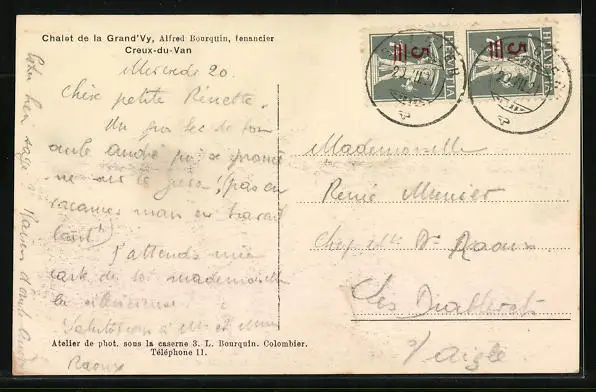 Chalet de la Grand'Vy, Alfred Bourquin, tenancier
Creux-du-Van
Mercredi 20.
Chère petite Renette,
Un gros bec de ton
oncle André qui se promè
ne sur le Jura! (pas en
vacances mais en travail
J'attends une
carte de toi mademoiselle
la silencieuse!
Salutations à Mr et Mme
Raoux
Atelier de phot. sous la caserne 3. L. Bourquin. Colombier.
Téléphone 11.
HELVETIA
5
HELVETIA
5
Mademoiselle
Renée Meunier
Chez Dr Raoux
Les Diablerets
s/ Aigle.